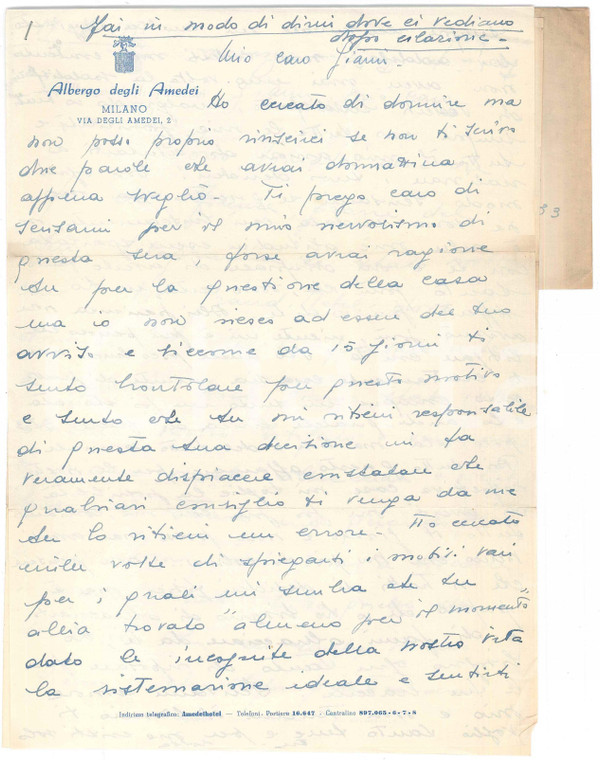 1 Fai in modo di dirmi dove ci vediamo
dopo colazione -
Mio caro Gianni -
Albergo degli Amedei
MILANO
VIA DEGLI AMEDEI, 2
Ho cercato di dormire ma
non posso proprio riuscirci se non ti scrivo
due parole che avrai domattina
appena sveglio - Ti prego caro di
scusarmi per il mio nervosismo di
questa sera, forse avrai ragione
tu per la questione della casa
ma io non riesco ad essere del tuo
avviso e siccome da 15 giorni ti
sento brontolare per questo motivo
e sento che tu mi ritieni responsabile
di questa tua decisione mi fa
veramente dispiacere constatare che
qualsiasi consiglio ti venga da me
tu lo ritieni un errore - Ho cercato
mille volte di spiegarti i motivi vari
per i quali mi sembra che tu
abbia trovato "almeno per il momento"
dato le incognite della nostra vita
la sistemazione ideale e sentirti
Indirizzo telegrafico: Amedehotel — Telefoni: Portiere 16.647 - Centralino 897.065-6-7-8
33